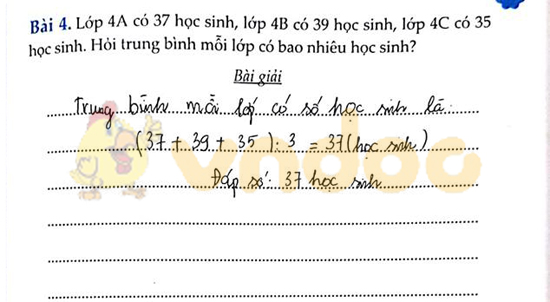 Bài 4. Lớp 4A có 37 học sinh, lớp 4B có 39 học sinh, lớp 4C có 35
học sinh. Hỏi trung bình mỗi lớp có bao nhiêu học sinh?
Bài giải
Trung bình mỗi lớp có số học sinh là:
(37 + 39 + 35) : 3 = 37 (học sinh)
Đáp số: 37 học sinh
vndoc